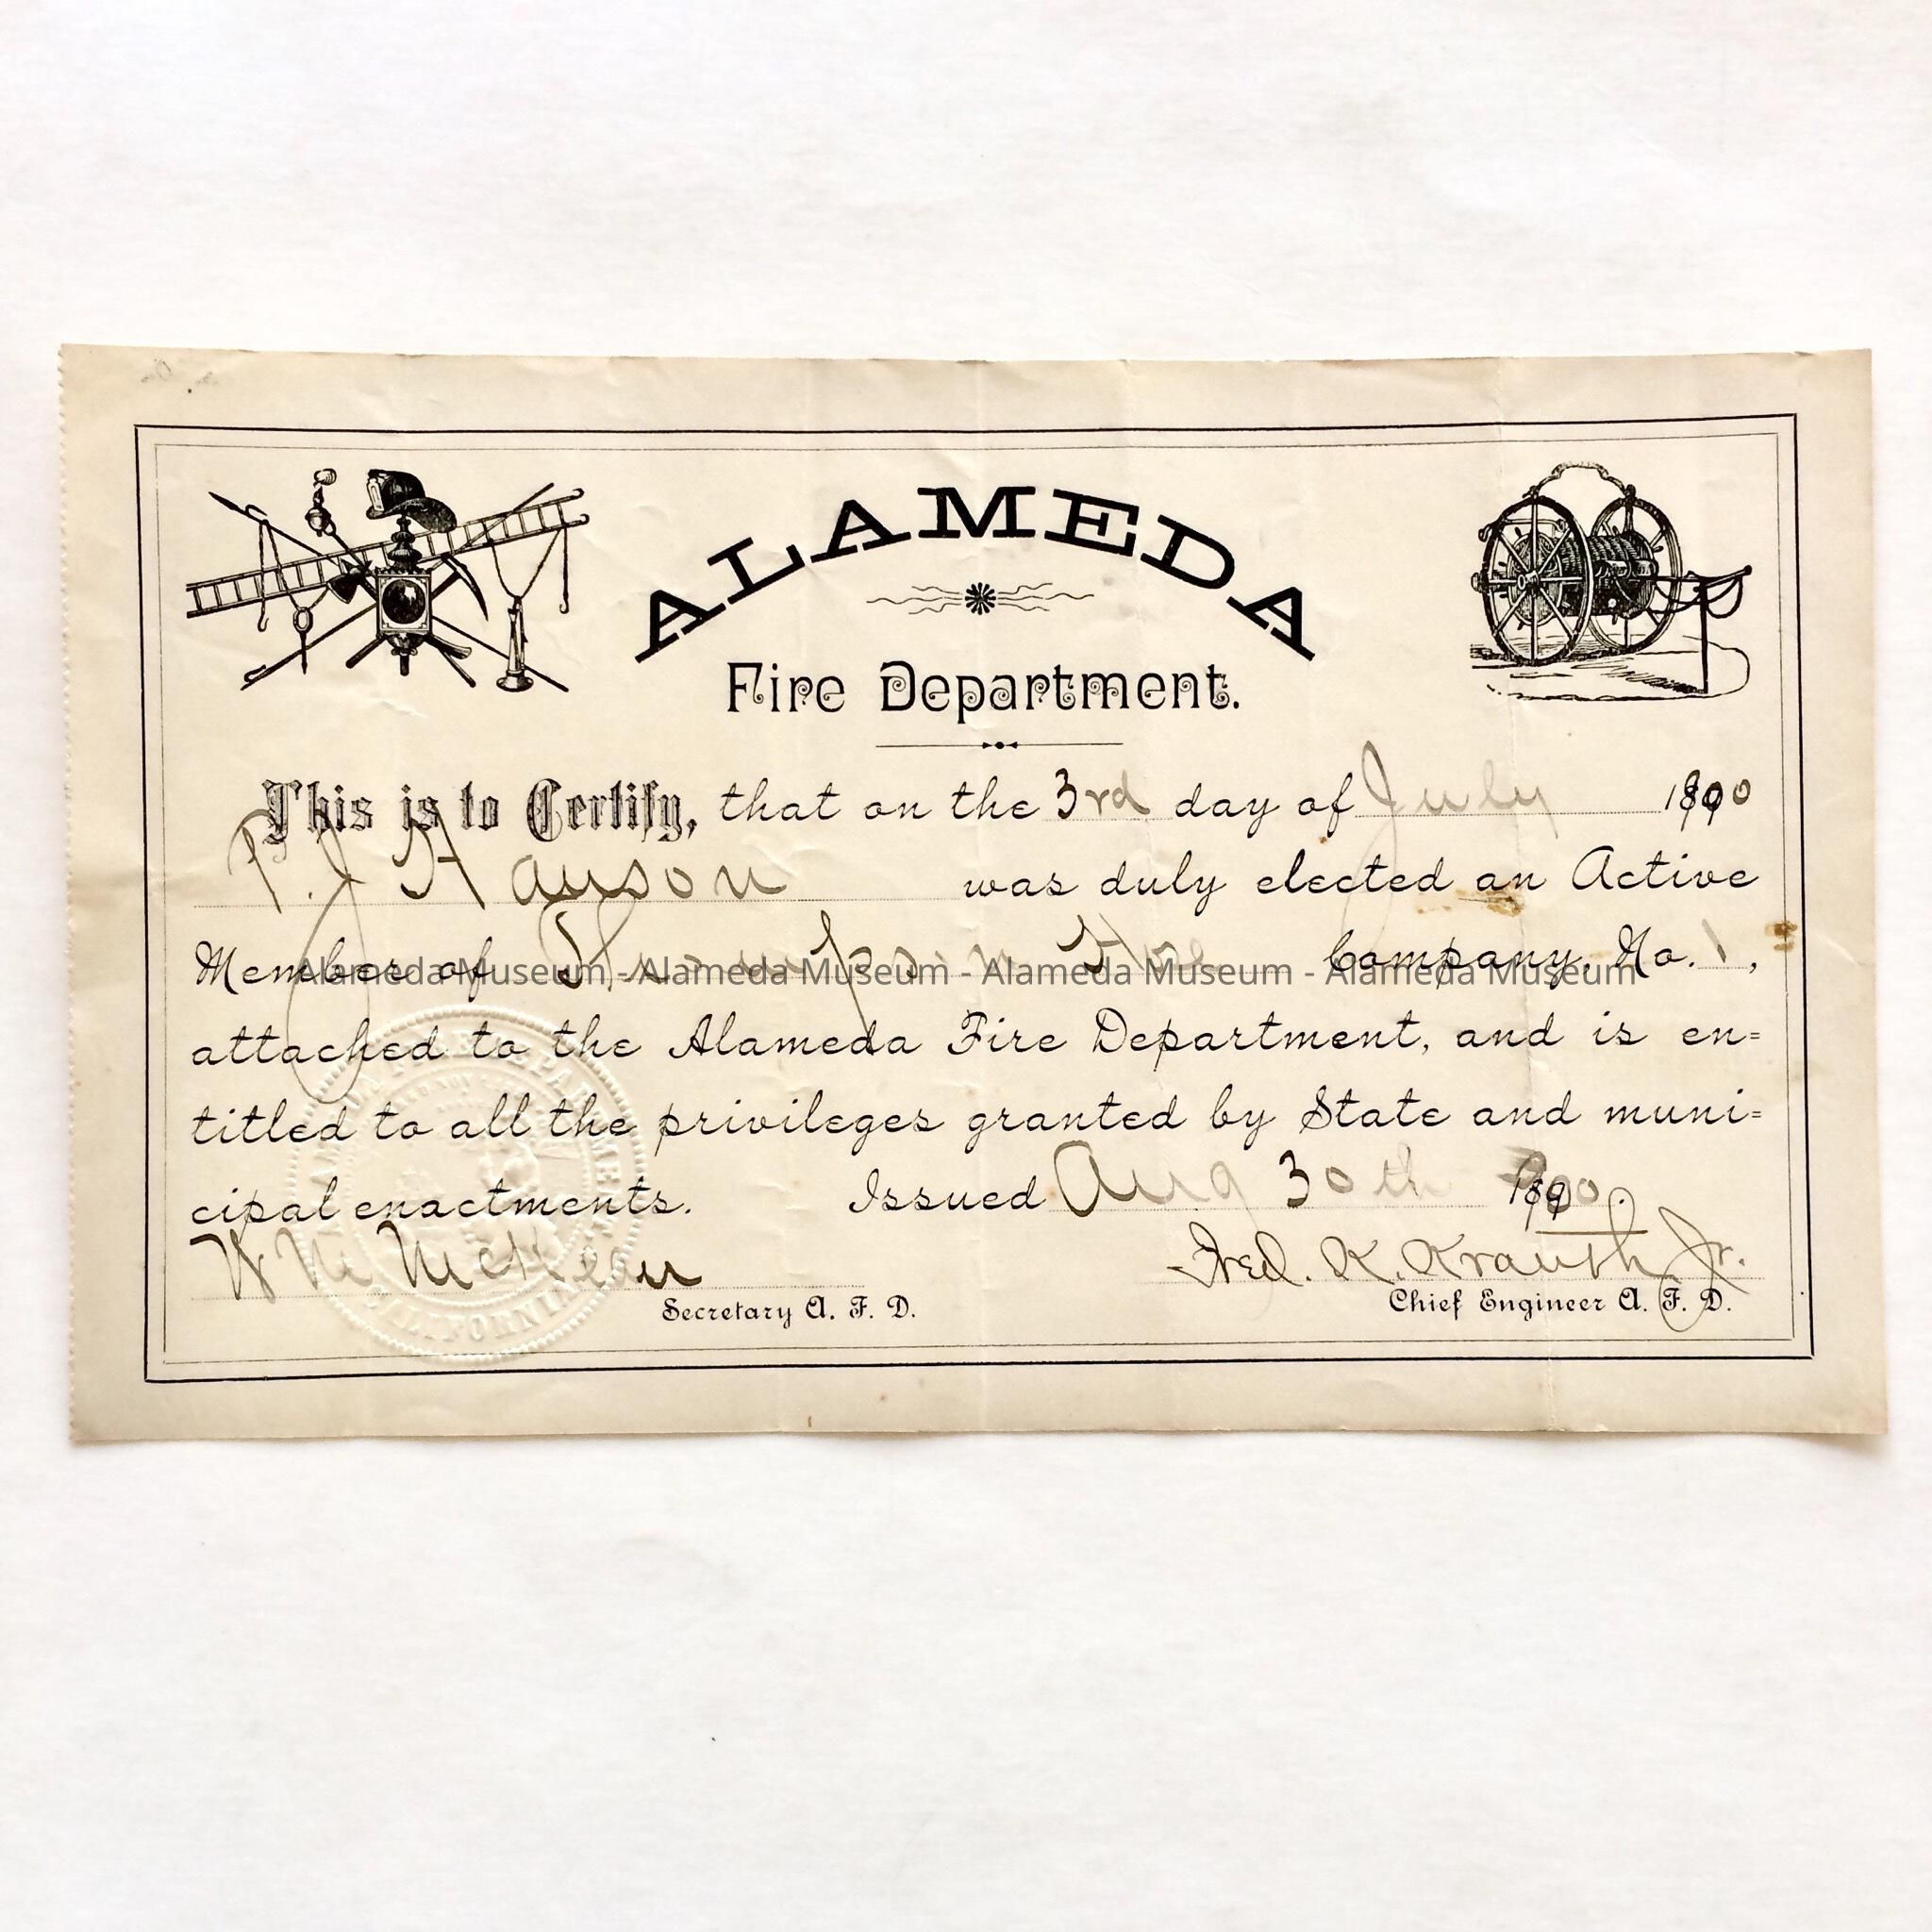 ALAMEDA
Fire Department.
This is to Certify, that on the 3rd day of July 1900
P. J Hanson was duly elected an Active
Member of Thompson Hose Company, No. 1,
Alameda Museum - Alameda Museum - Alameda Museum - Alameda Museum
attached to the Alameda Fire Department, and is en=
titled to all the privileges granted by State and muni=
cipal enactments. Issued Aug 30th 1900.
Wm McKean Fred. K. Krauth Jr.
Secretary A. F. D. Chief Engineer A. F. D.
CALIFORNIA